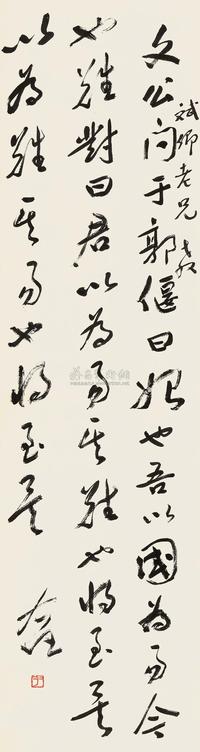 文公问于郭偃曰始也吾以國为易今
也難對曰君以为易其難也将至矣
以为難其易也将至矣
斌卿老兄
右任